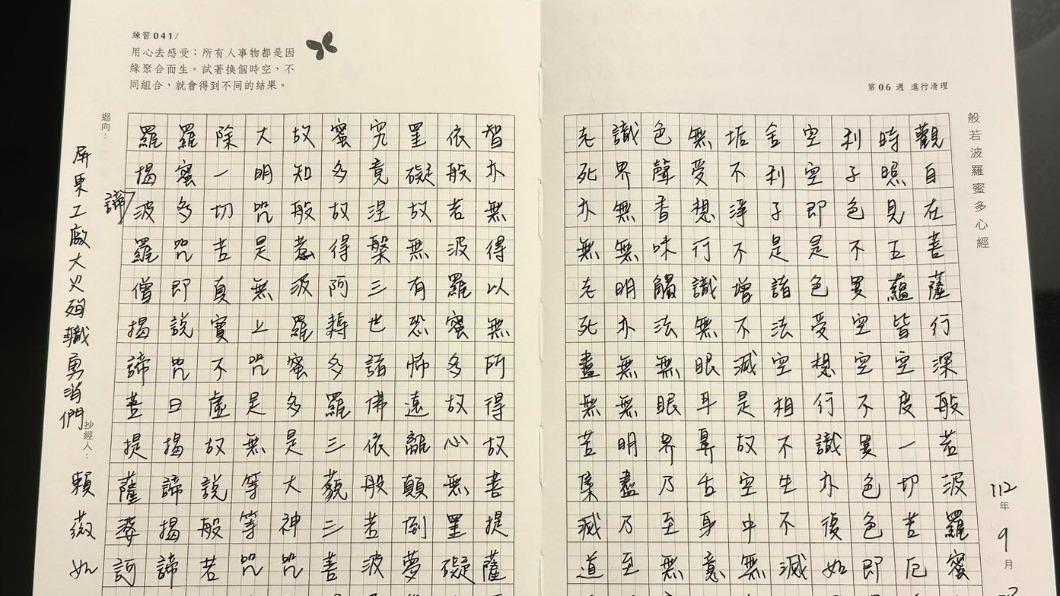 第 06 週 進行清理
般若波羅蜜多心經
112年9月
觀自在菩薩行深般若波羅蜜
時照見五蘊皆空度一切苦厄
利子色不異空空不異色色即
空空即是色受想行識亦復如
舍利子是諸法空相不生不滅
垢不淨不增不減是故空中無
無受想行識無眼耳鼻舌身意
色聲香味觸法無眼界乃至無
識界無無明亦無無明盡乃至
老死亦無老死盡無苦集滅道
練習041/
用心去感受：所有人事物都是因
緣聚合而生。試著換個時空，不
同組合，就會得到不同的結果。
智亦無得以無所得故菩提薩
依般若波羅蜜多故心無罣礙
罣礙故無有恐怖遠離顛倒夢
究竟涅槃三世諸佛依般若波
蜜多故得阿耨多羅三藐三菩
故知般若波羅蜜多是大神咒
大明咒是無上咒是無等等咒
除一切苦真實不虛故說般若
羅蜜多咒即說咒曰揭諦揭諦
羅揭諦波羅僧揭諦菩提薩婆訶
迴向：屏東工廠大火殉職勇消們
抄經人：賴薇如